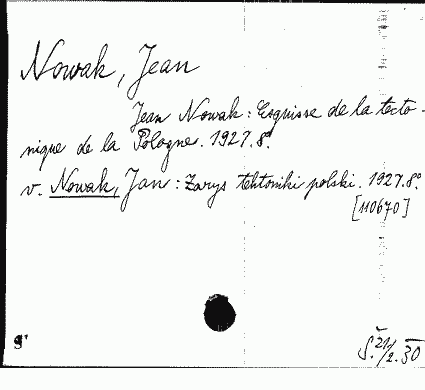 Nowak, Jean
Jean Nowak: Esquisse de la tecto-
nique de la Pologne. 1927. 8°.
v. Nowak, Jan: Zarys tektoniki polski. 1927. 8°.
[110670]
Š. 21/2. 30